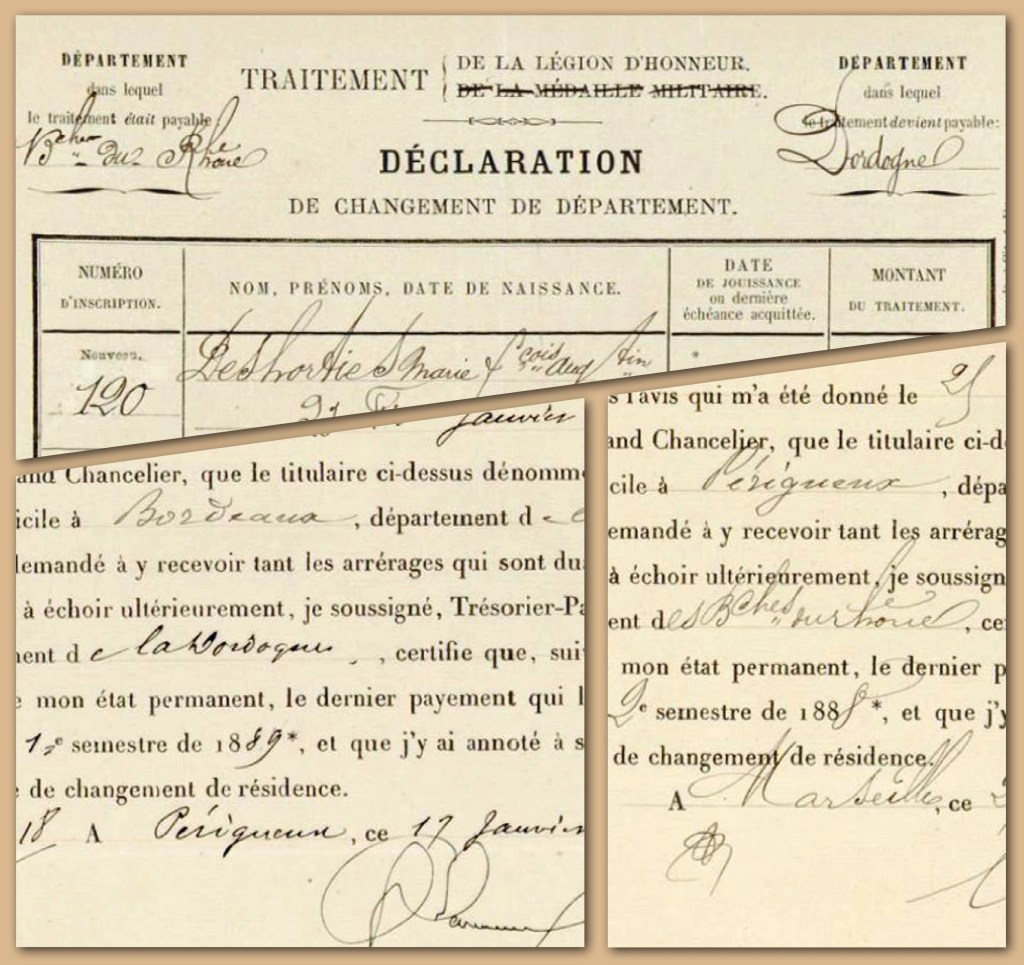 DÉPARTEMENT
dans lequel
le traitement était payable
Bches du Rhône
TRAITEMENT { DE LA LÉGION D'HONNEUR.
DE LA MÉDAILLE MILITAIRE.
DÉPARTEMENT
dans lequel
le traitement devient payable:
Dordogne
DÉCLARATION
DE CHANGEMENT DE DÉPARTEMENT.
NUMÉRO
D'INSCRIPTION.
NOM, PRÉNOMS, DATE DE NAISSANCE.
DATE
DE JOUISSANCE
ou dernière
échéance acquittée.
MONTANT
DU TRAITEMENT.
Nouveau.
120
Deshorties Marie fcois Augtin
Janvier
and Chancelier, que le titulaire ci-dessus dénomm
icile à Bordeaux, département d
demandé à y recevoir tant les arrérages qui sont du
à échoir ultérieurement, je soussigné, Trésorier-Pa
ent de la Dordogne, certifie que, sui
e mon état permanent, le dernier payement qui l
1er semestre de 1889*, et que j'y ai annoté à s
e de changement de résidence.
18 A Périgueux, ce 17 Janvier
s l'avis qui m'a été donné le 25
and Chancelier, que le titulaire ci-d
cile à Périgueux, dépa
emandé à y recevoir tant les arrérag
à échoir ultérieurement, je soussign
ent des Bches du Rhône, ce
mon état permanent, le dernier p
2e semestre de 1888*, et que j'y
de changement de résidence.
A Marseille, ce 2